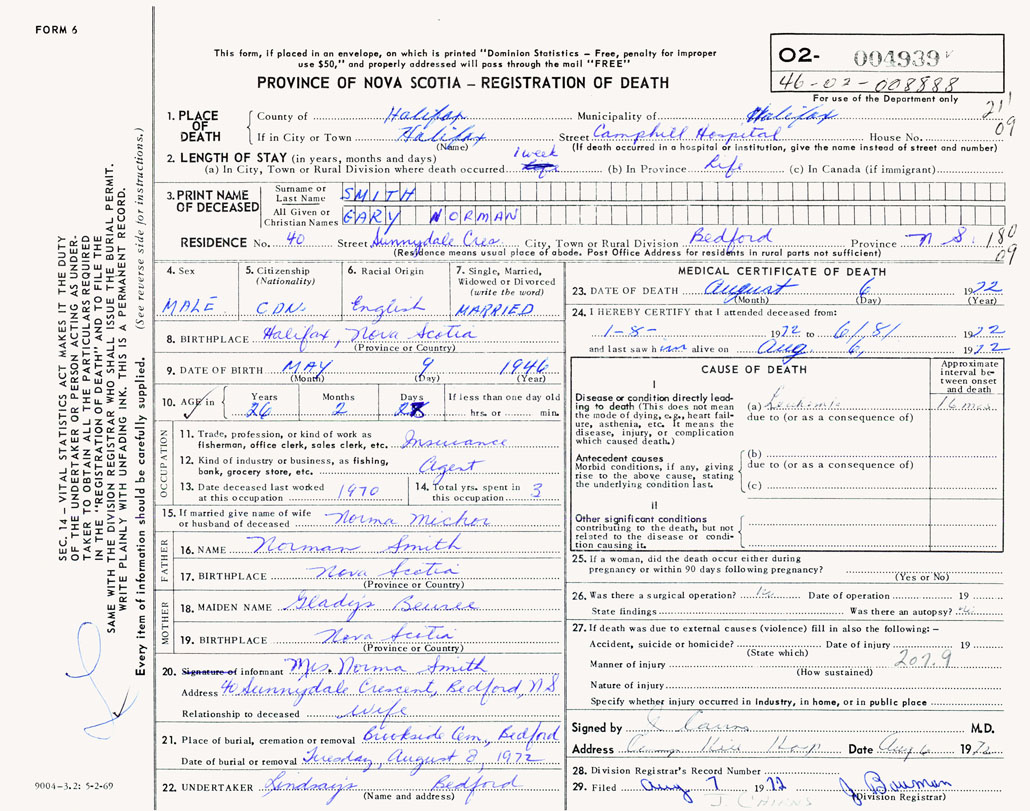 FORM 6
This form, if placed in an envelope, on which is printed "Dominion Statistics – Free, penalty for improper
use $50," and properly addressed will pass through the mail "FREE"
PROVINCE OF NOVA SCOTIA – REGISTRATION OF DEATH
02- 004939
46-02-008888
For use of the Department only
1. PLACE OF DEATH
County of Halifax Municipality of Halifax 211
If in City or Town Halifax Street Camphill Hospital House No. 09
(Name) (If death occurred in a hospital or institution, give the name instead of street and number)
2. LENGTH OF STAY (in years, months and days) 1 week
(a) In City, Town or Rural Division where death occurred (b) In Province Life (c) In Canada (if immigrant)
3. PRINT NAME OF DECEASED
Surname or Last Name SMITH
All Given or Christian Names GARY NORMAN
RESIDENCE No. 40 Street Sunnydale Cres. City, Town or Rural Division Bedford Province N S. 180
(Residence means usual place of abode. Post Office Address for residents in rural parts not sufficient) 09
4. Sex
MALE
5. Citizenship
(Nationality)
CDN.
6. Racial Origin
English
7. Single, Married,
Widowed or Divorced
(write the word)
MARRIED
8. BIRTHPLACE Halifax, Nova Scotia
(Province or Country)
9. DATE OF BIRTH MAY 9 1946
(Month) (Day) (Year)
10. AGE in Years Months Days If less than one day old
26 2 28 hrs. or min.
OCCUPATION
11. Trade, profession, or kind of work as
fisherman, office clerk, sales clerk, etc. Insurance
12. Kind of industry or business, as fishing,
bank, grocery store, etc. Agent
13. Date deceased last worked
at this occupation 1970
14. Total yrs. spent in
this occupation 3
15. If married give name of wife
or husband of deceased Norma
FATHER
16. NAME Norman Smith
17. BIRTHPLACE Nova Scotia
(Province or Country)
MOTHER
18. MAIDEN NAME Gladys
19. BIRTHPLACE Nova Scotia
(Province or Country)
20. Signature of informant Mrs. Norma Smith
Address 40 Sunnydale Crescent, Bedford, NS
Relationship to deceased Wife
21. Place of burial, cremation or removal Brookside Cem., Bedford
Date of burial or removal Tuesday, August 8, 1972
22. UNDERTAKER Lindsay's Bedford
(Name and address)
MEDICAL CERTIFICATE OF DEATH
23. DATE OF DEATH August 6 1972
(Month) (Day) (Year)
24. I HEREBY CERTIFY that I attended deceased from:
1-8- 1972 to 6/8/ 1972
and last saw him alive on Aug 6, 1972
CAUSE OF DEATH
Approximate
interval be-
tween onset
and death
I
Disease or condition directly lead-
ing to death (This does not mean
the mode of dying, e.g., heart fail-
ure, asthenia, etc. It means the
disease, injury, or complication
which caused death.)
(a) Leukemia 16 mos
due to (or as a consequence of)
Antecedent causes
Morbid conditions, if any, giving
rise to the above cause, stating
the underlying condition last.
(b)
due to (or as a consequence of)
(c)
II
Other significant conditions
contributing to the death, but not
related to the disease or condi-
tion causing it.
25. If a woman, did the death occur either during
pregnancy or within 90 days following pregnancy?
(Yes or No)
26. Was there a surgical operation? No Date of operation 19
State findings Was there an autopsy?
27. If death was due to external causes (violence) fill in also the following: –
Accident, suicide or homicide? Date of injury 19
(State which) 207.9
Manner of injury
(How sustained)
Nature of injury
Specify whether injury occurred in industry, in home, or in public place
Signed by M.D.
Address Camp Hill Hosp Date Aug 6 1972
28. Division Registrar's Record Number
29. Filed Aug 7 1972 J. Bowman
(Division Registrar)
SEC. 14 – VITAL STATISTICS ACT MAKES IT THE DUTY
OF THE UNDERTAKER OR PERSON ACTING AS UNDER-
TAKER TO OBTAIN ALL THE PARTICULARS REQUIRED
IN THE "REGISTRATION OF DEATH" AND TO FILE THE
SAME WITH THE DIVISION REGISTRAR WHO SHALL ISSUE THE BURIAL PERMIT.
WRITE PLAINLY WITH UNFADING INK. THIS IS A PERMANENT RECORD.
Every item of information should be carefully supplied. (See reverse side for instructions.)
9004–3.2: 5-2-69